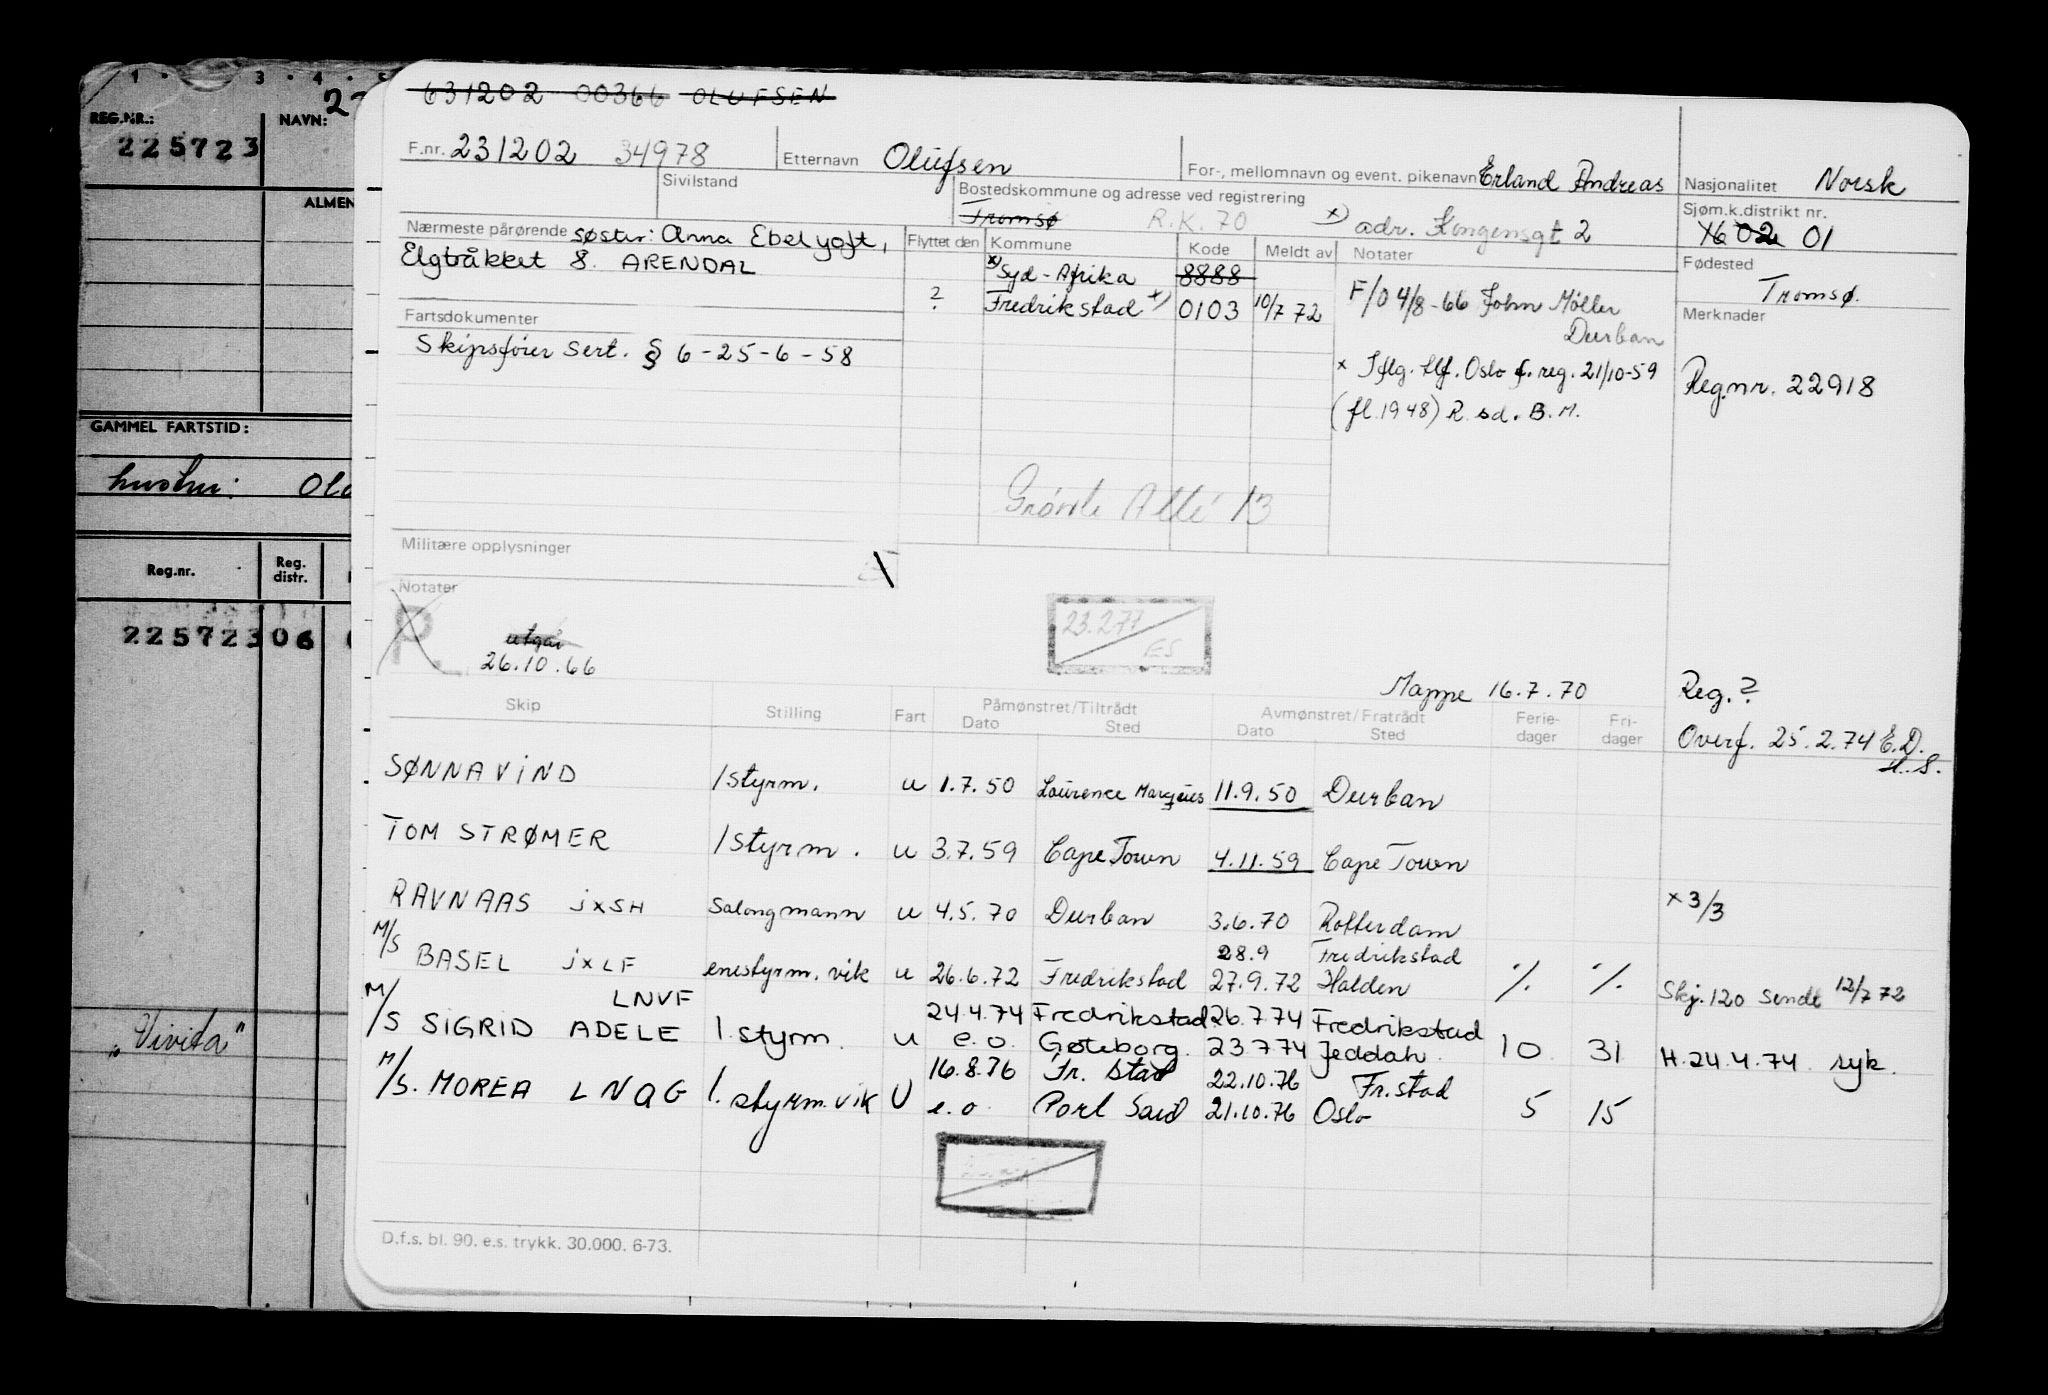 1 · 3 · 4 · 5
REG.NR.: NAVN:
225723
ALMEN
GAMMEL FARTSTID:
hustru:
Reg.nr. Reg. distr.
225723 06
"Vivita"
631202 00366 OLUFSEN
F.nr. 231202 34978 Etternavn Olufsen For-, mellomnavn og event. pikenavn Erland Andreas Nasjonalitet Norsk
Sivilstand Bostedskommune og adresse ved registrering Sjøm.k.distrikt nr.
Tromsø R.K. 70 x) adr. Kongensgt 2 16 02 01
Nærmeste pårørende søster: Anna Ebeltoft, Flyttet den Kommune Kode Meldt av Notater Fødested
Elgtråkket 8. ARENDAL x) Syd-Afrika 8888 Tromsø.
? Fredrikstad x) 0103 10/7 72 F/O 4/8-66 John Møller
Durban
Fartsdokumenter Merknader
Skipsfører Sert. § 6-25-6-58
x Iflg. tlf. Oslo f. reg. 21/10-59
Regnr. 22918
(fl. 1948) R. sd. B. M.
Allé 13
Militære opplysninger
Notater
R
utgår
26.10.66
23.2.77
ES
Mappe 16.7.70 Reg.?
Skip Stilling Fart Påmønstret/Tiltrådt Avmønstret/Fratrådt Ferie- Fri-
Dato Sted Dato Sted dager dager
Overf. 25.2.74 E.D.
SØNNAVIND 1 styrm. u 1.7.50 Laurence Marques 11.9.50 Durban
TOM STRØMER 1 styrm. u 3.7.59 Cape Town 4.11.59 Cape Town
RAVNAAS JXSH Salongmann u 4.5.70 Durban 3.6.70 Rotterdam x 3/3
28.9 Fredrikstad
M/S BASEL JXLF enestyrm. vik u 26.6.72 Fredrikstad 27.9.72 Halden ./. ./. Skj. 120 sendt 12/7 72
LNVF 24.4.74 Fredrikstad 26.7.74 Fredrikstad
M/S SIGRID ADELE 1. styrm. u e.o. Gøteborg 23.7.74 Jeddah. 10 31 H. 24.4.74 syk.
16.8.76 Fr. Stad 22.10.76 Fr.stad
M/S. MOREA LNQG 1. styrm. vik U e.o. Port Said 21.10.76 Oslo 5 15
D.f.s. bl. 90. e.s. trykk. 30.000. 6-73.